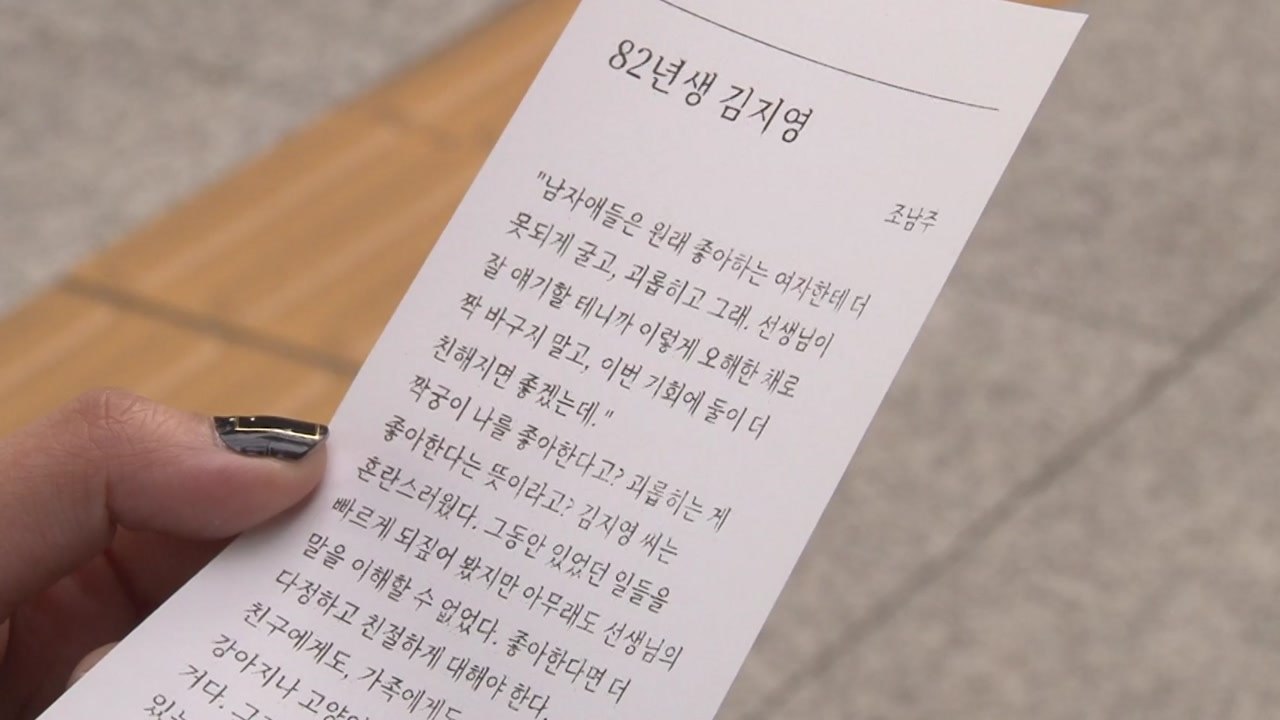 82년생 김지영
조남주
"남자애들은 원래 좋아하는 여자한테 더
못되게 굴고, 괴롭히고 그래. 선생님이
잘 얘기할 테니까 이렇게 오해한 채로
짝 바꾸지 말고, 이번 기회에 둘이 더
친해지면 좋겠는데."
짝궁이 나를 좋아한다고? 괴롭히는 게
좋아한다는 뜻이라고? 김지영 씨는
혼란스러웠다. 그동안 있었던 일들을
빠르게 되짚어 봤지만 아무래도 선생님의
말을 이해할 수 없었다. 좋아한다면 더
다정하고 친절하게 대해야 한다.
친구에게도, 가족에게도
강아지나
거다.